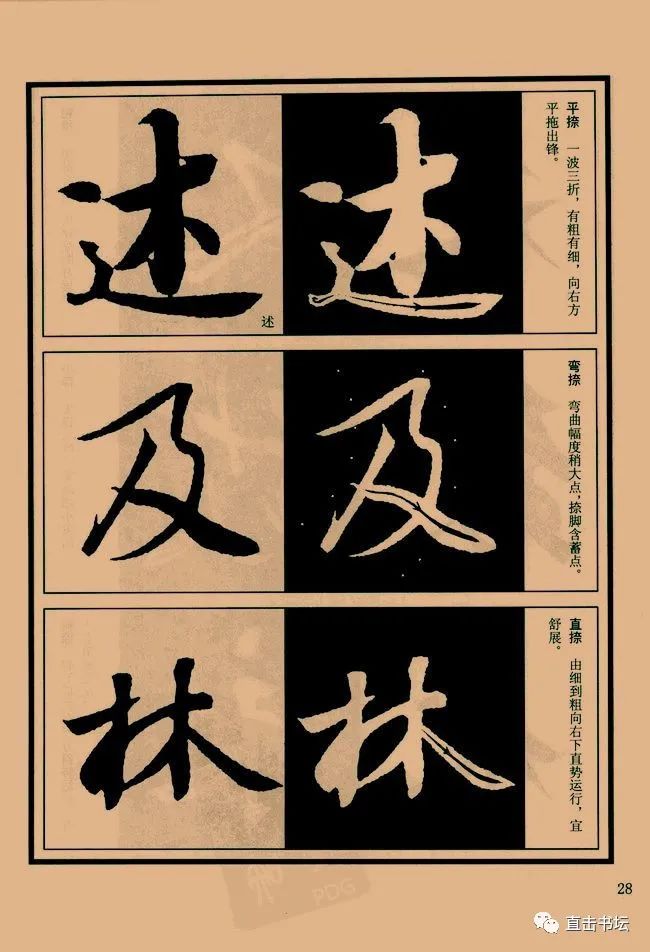 述
述
述
平捺　一波三折，有粗有细，向右方
平拖出锋。
及
及
弯捺　弯曲幅度稍大点，捺脚含蓄点。
林
林
直捺　由细到粗向右下直势运行，宜
舒展。
PDG
28
直击书坛